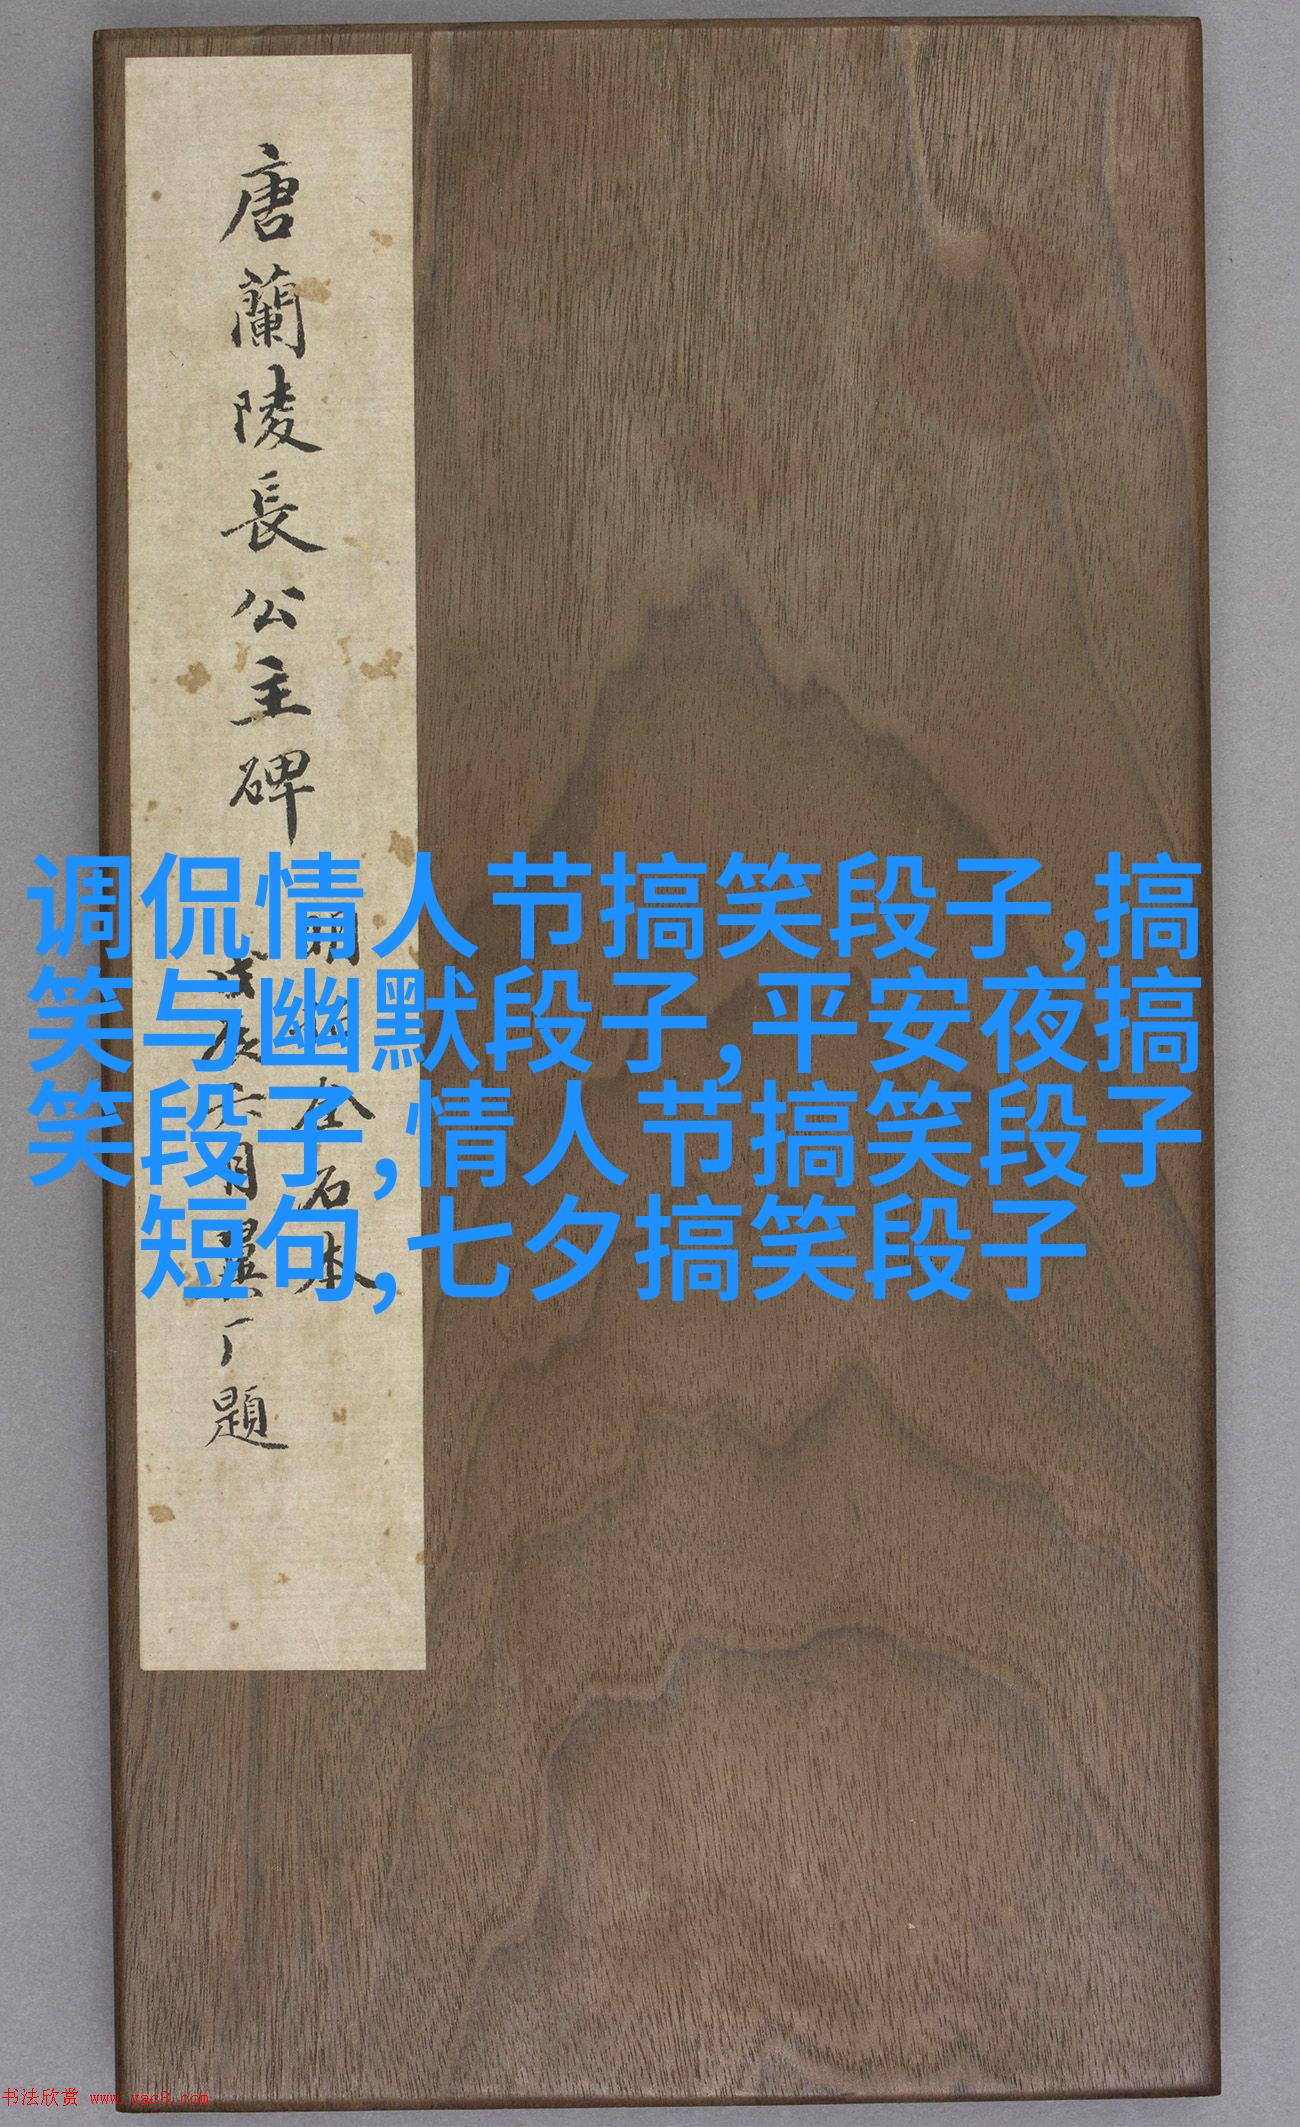 唐蘭陵長公主碑
金石本
戊辰六月翼厂題
调侃情人节搞笑段子,搞
笑与幽默段子,平安夜搞
笑段子,情人节搞笑段子
短句,七夕搞笑段子
书法欣赏 www.yac8.com